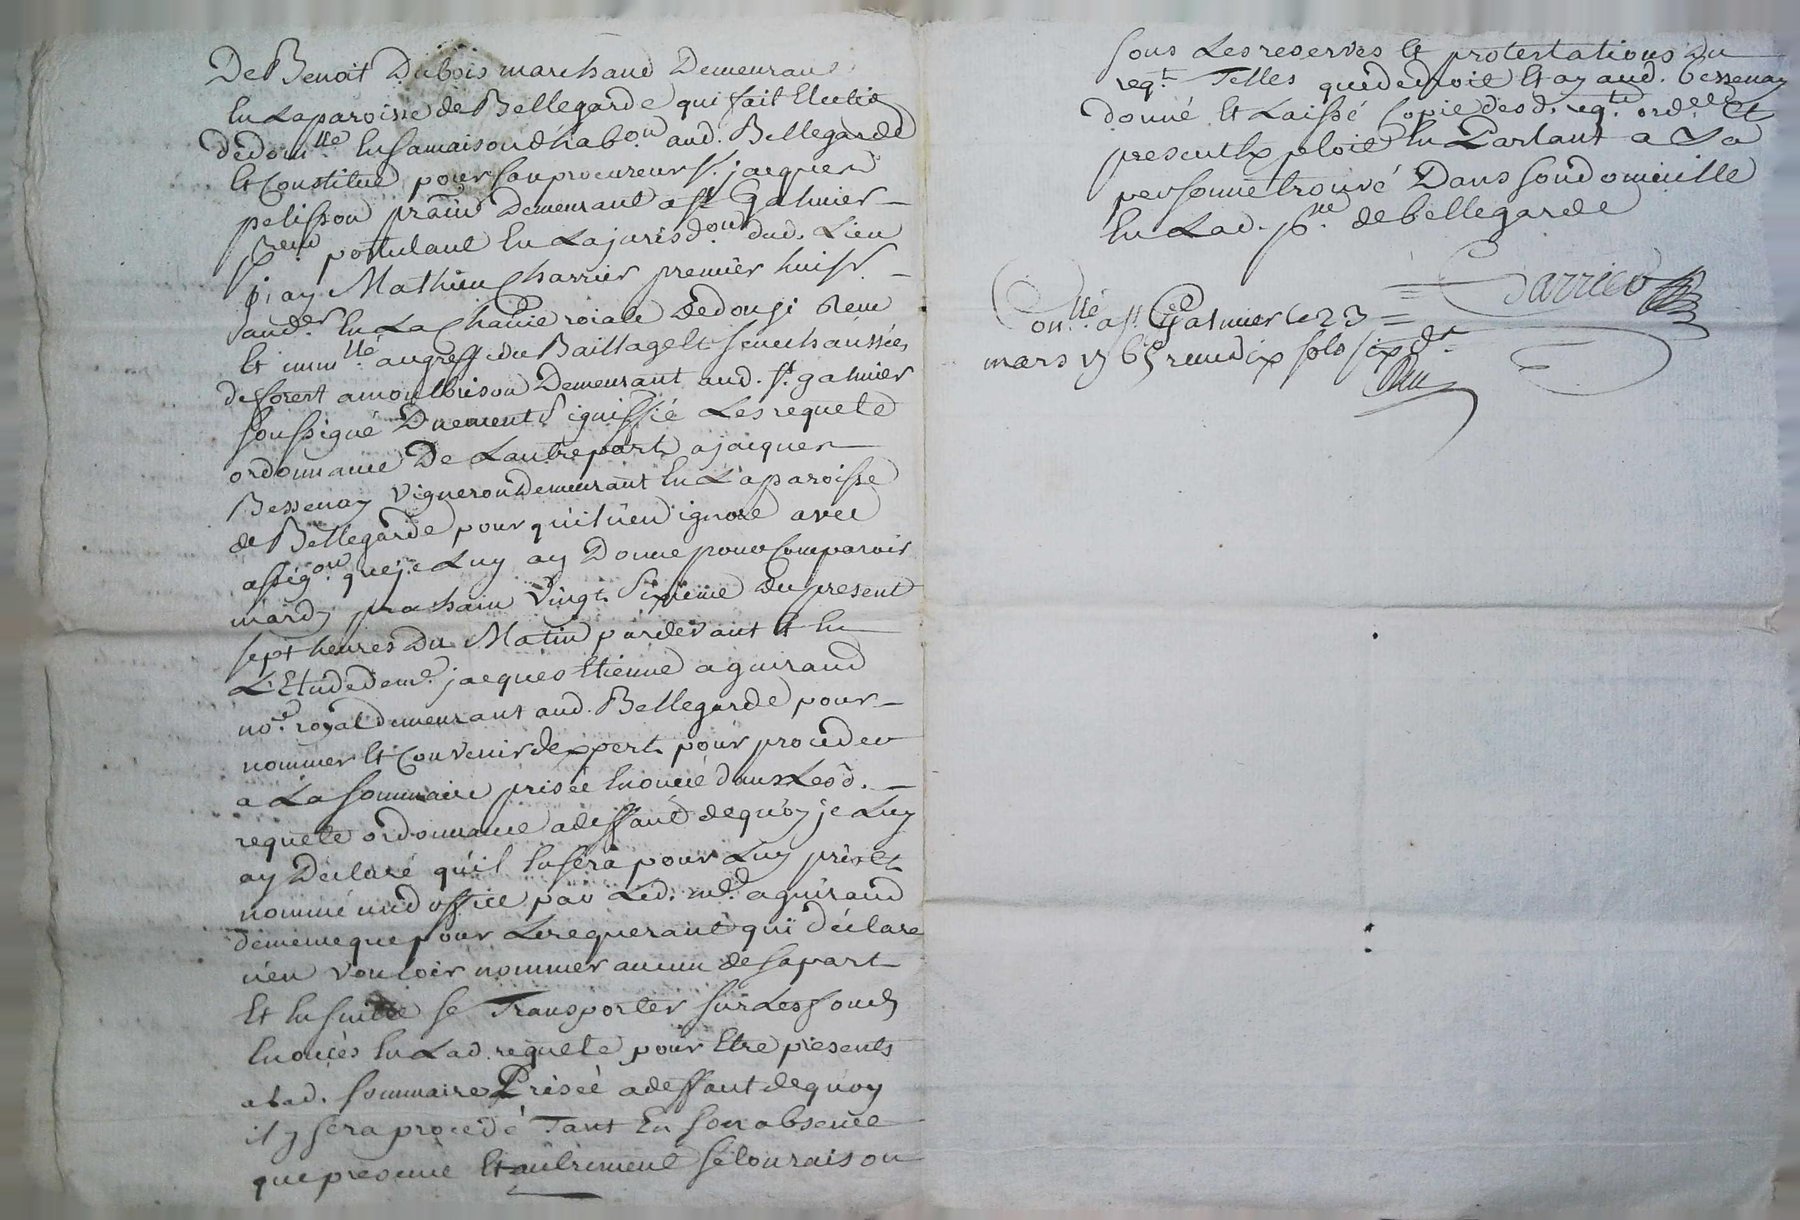 De Benoit Dubois marchand Demeurant
En Laparoisse de Bellegarde qui fait Election
dedom.lle En samaison d'hab.on aud. Bellegarde
Et Constitue pour son procureur S.r jacques
pelisson Demeurant a S.t Galmier
postulant En La jurisd.on dud. Lieu
j'ay Mathieu Charrier premier huiss.r
aud.er En La Ch roiale Dedonzi
Et imm.llé au greffe du Baillage Et senechaussée
deforest amontbrison Demeurant aud. S.t galmier
soussigné Duement signiffié Les requete
ordonnance De Lautrepart a jacques
Bessenay vigneron demeurant En La paroisse
de Bellegarde pour qu'il n'en ignore avec
assig.on que je Luy ay Donné pour Comparoir
mardy prochain vingt sixieme du present
sept heures Du Matin pardevant Et En
L'Etude de me. jacques Etienne aguiraud
no.re royal demeurant aud. Bellegarde pour
nommer Et Convenir d'expert pour proceder
a La sommaire prisée Enoncée dans Lesd.
requete ordonnance a deffaut dequoy je Luy
ay Declaré qu'il En sera pour Luy pris Et
nommé un d'office par Led. me. aguiraud
de meme que pour Le requerant qui declare
n'en vouloir nommer aucun de sa part
Et En suitte se Transporter sur Les fonds
Enoncés En Lad. requete pour Etre presents
a Lad. sommaire Prisée a deffaut dequoy
il y sera procedé Tant En son absence
que presence Et autrement selon raison
sous Les reserves Et protestations Du
req.t Telles que dedroit Et ay aud. Bessenay
donné Et Laissé Copie desd. reqte. ord.ce Et
present Exploit En Parlant a Sa
personne trouvé Dans son domicille
En Lad. p.sse de bellegarde
Charrier
Con.llé a S.t Galmier Le 23
mars 1765 reçu dix sols six d.rs